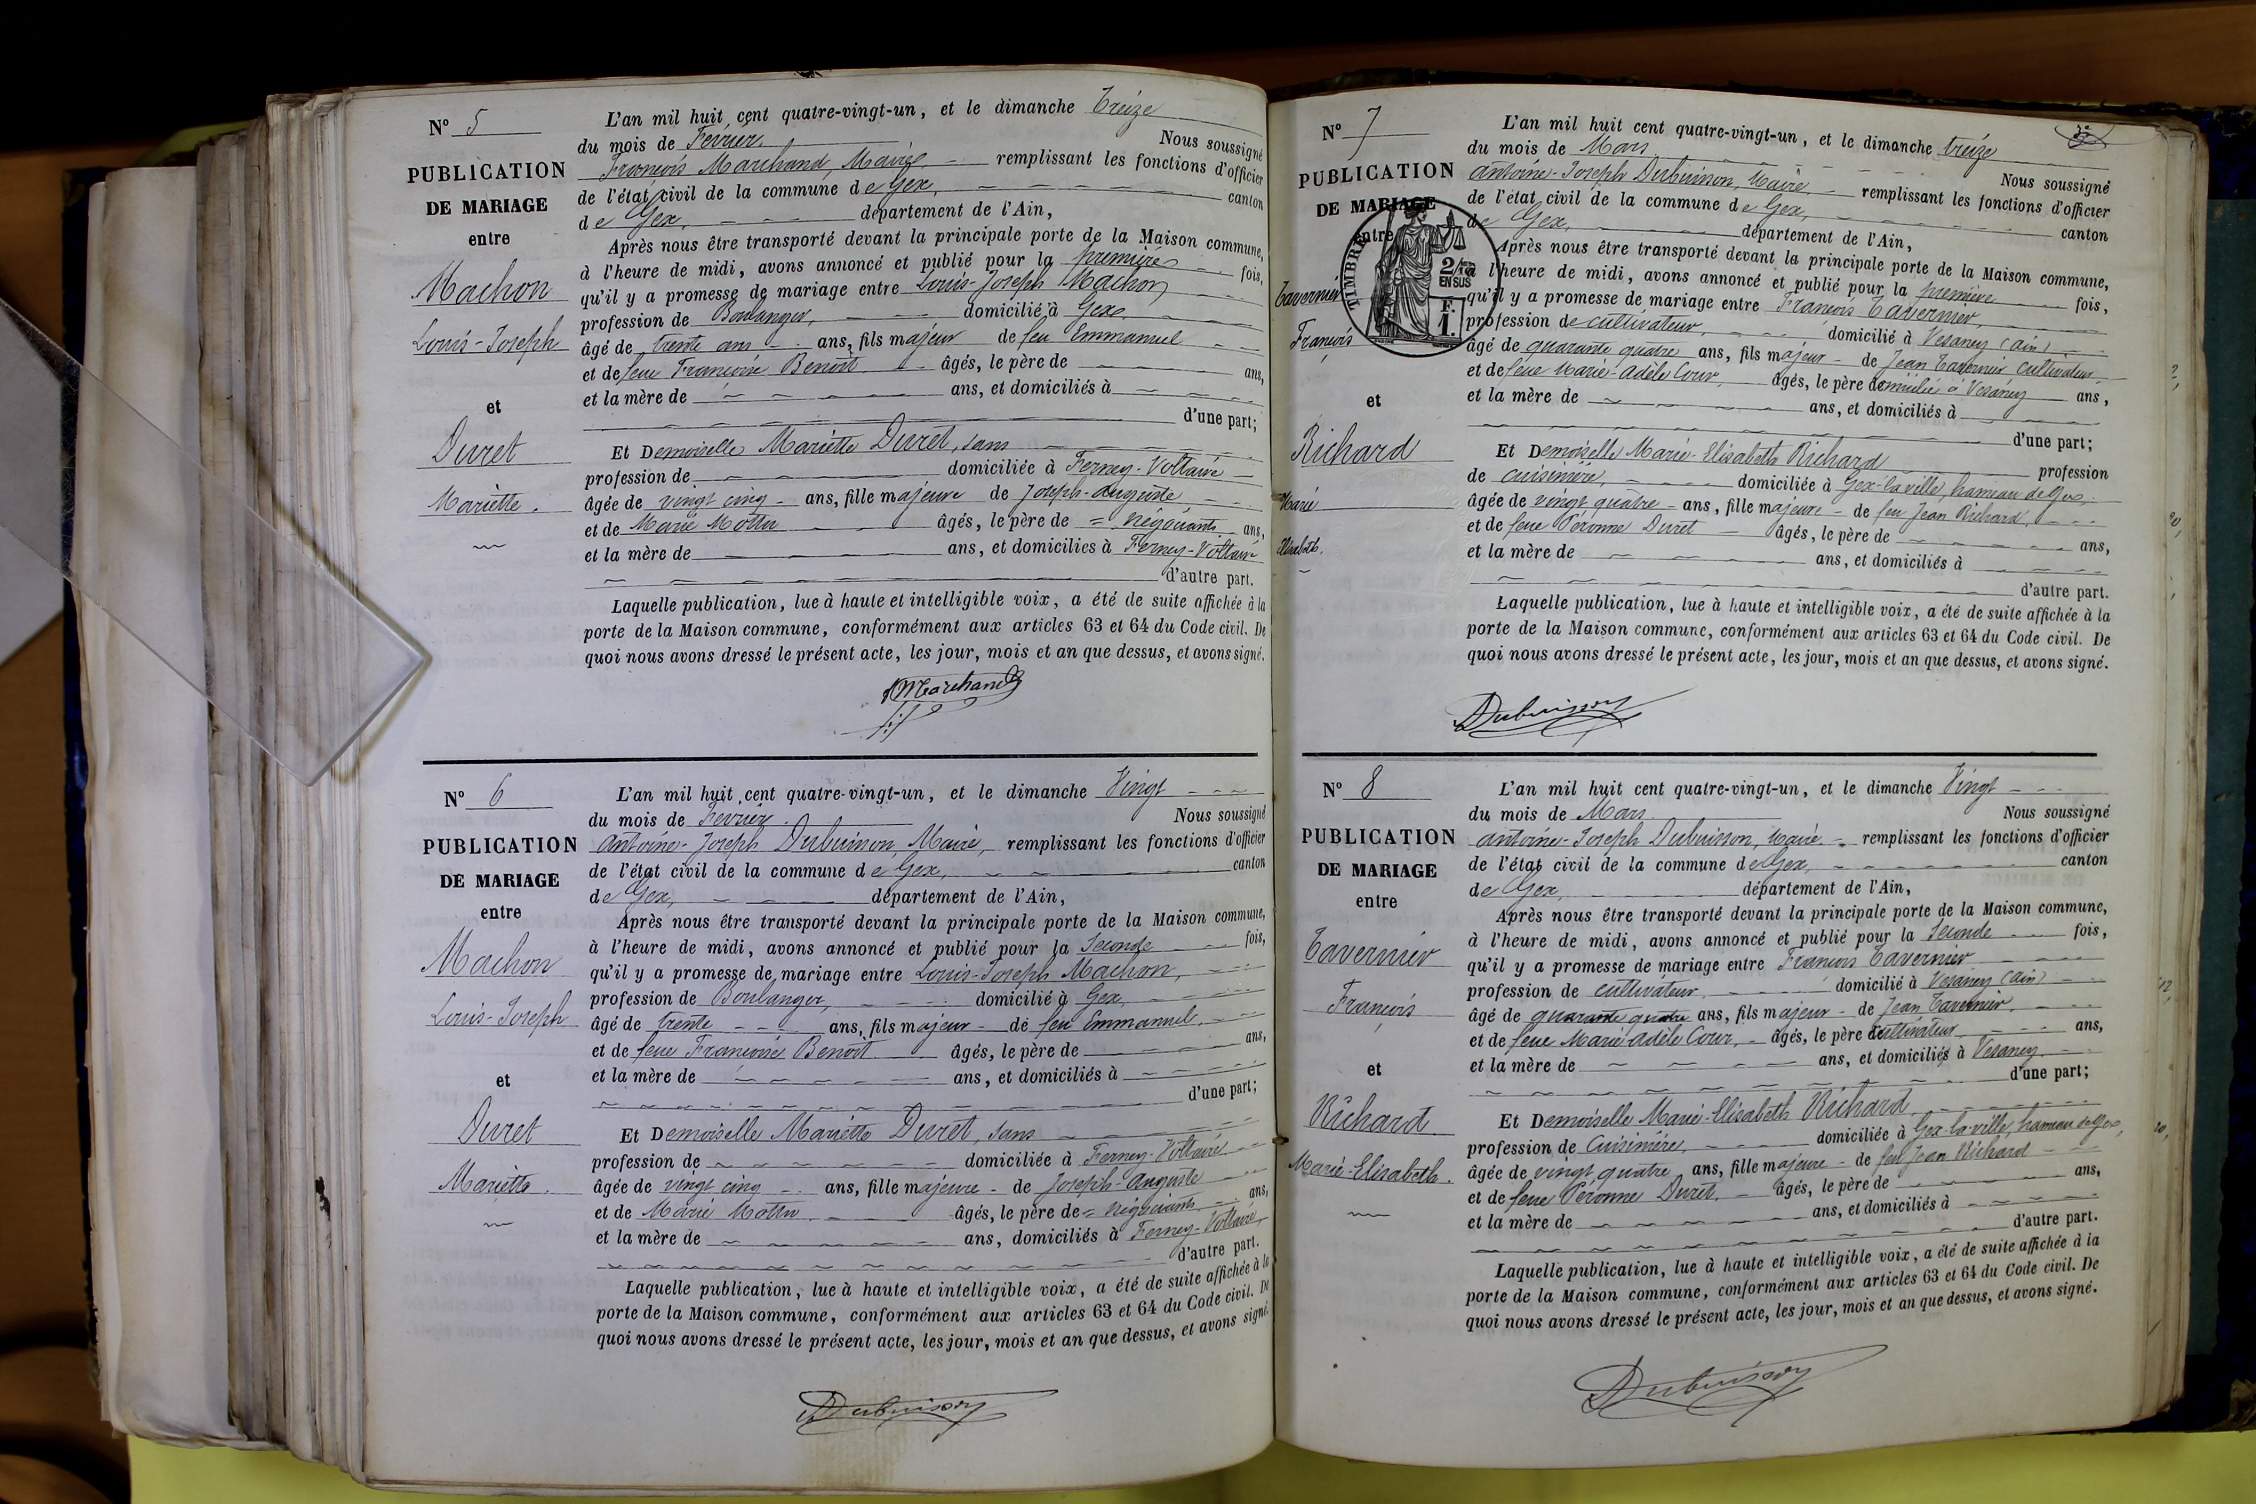 N° 5
PUBLICATION
DE MARIAGE
entre
Machon
Louis-Joseph
et
Duret
Mariette.
L'an mil huit cent quatre-vingt-un, et le dimanche Treize
du mois de Février. Nous soussigné
François Marchand, Maire remplissant les fonctions d'officier
de l'état civil de la commune de Gex, canton
de Gex, département de l'Ain,
Après nous être transporté devant la principale porte de la Maison commune,
à l'heure de midi, avons annoncé et publié pour la première fois,
qu'il y a promesse de mariage entre Louis-Joseph Machon
profession de Boulanger, domicilié à Gex
âgé de trente ans ans, fils majeur de feu Emmanuel
et de feue Françoise Benoit âgés, le père de ans,
et la mère de ans, et domiciliés à
d'une part;
Et Demoiselle Mariette Duret, sans
profession de domiciliée à Ferney-Voltaire
âgée de vingt cinq ans, fille majeure de Joseph-Auguste
et de Marie âgés, le père de = négociants ans,
et la mère de ans, et domiciliés à Ferney-Voltaire
d'autre part.
Laquelle publication, lue à haute et intelligible voix, a été de suite affichée à la
porte de la Maison commune, conformément aux articles 63 et 64 du Code civil. De
quoi nous avons dressé le présent acte, les jour, mois et an que dessus, et avons signé.
Marchand
N° 6
PUBLICATION
DE MARIAGE
entre
Machon
Louis-Joseph
et
Duret
Mariette.
L'an mil huit cent quatre-vingt-un, et le dimanche Vingt
du mois de Février. Nous soussigné
Antoine-Joseph Dubuisson, Maire, remplissant les fonctions d'officier
de l'état civil de la commune de Gex, canton
de Gex, département de l'Ain,
Après nous être transporté devant la principale porte de la Maison commune,
à l'heure de midi, avons annoncé et publié pour la seconde fois,
qu'il y a promesse de mariage entre Louis-Joseph Machon,
profession de Boulanger, domicilié à Gex
âgé de trente ans, fils majeur de feu Emmanuel,
et de feue Françoise Benoit âgés, le père de ans,
et la mère de ans, et domiciliés à
d'une part;
Et Demoiselle Mariette Duret, sans
profession de domiciliée à Ferney-Voltaire
âgée de vingt cinq ans, fille majeure de Joseph-Auguste
et de Marie âgés, le père de = négociants ans,
et la mère de ans, domiciliés à Ferney-Voltaire,
d'autre part.
Laquelle publication, lue à haute et intelligible voix, a été de suite affichée à la
porte de la Maison commune, conformément aux articles 63 et 64 du Code civil. De
quoi nous avons dressé le présent acte, les jour, mois et an que dessus, et avons signé.
Dubuisson
N° 7
PUBLICATION
DE MARIAGE
entre
TIMBRE
2/10
EN SUS
F.
1.
Tavernier
François
et
Richard
Marie
Elisabeth.
L'an mil huit cent quatre-vingt-un, et le dimanche treize
du mois de Mars Nous soussigné
Antoine-Joseph Dubuisson, Maire remplissant les fonctions d'officier
de l'état civil de la commune de Gex, canton
de Gex, département de l'Ain,
Après nous être transporté devant la principale porte de la Maison commune,
à l'heure de midi, avons annoncé et publié pour la première fois,
qu'il y a promesse de mariage entre François Tavernier,
profession de cultivateur, domicilié à Vesancy (Ain)
âgé de quarante quatre ans, fils majeur de Jean Tavernier cultivateur,
et de feue Marie-Adèle Cour, âgés, le père domicilié à Vesancy ans,
et la mère de ans, et domiciliés à
d'une part;
Et Demoiselle Marie-Elisabeth Richard profession
de cuisinière, domiciliée à Gex-la-ville, hameau de Gex,
âgée de vingt quatre ans, fille majeure de feu Jean Richard,
et de feue Péronne Duret âgés, le père de ans,
et la mère de ans, et domiciliés à
d'autre part.
Laquelle publication, lue à haute et intelligible voix, a été de suite affichée à la
porte de la Maison commune, conformément aux articles 63 et 64 du Code civil. De
quoi nous avons dressé le présent acte, les jour, mois et an que dessus, et avons signé.
Dubuisson
N° 8
PUBLICATION
DE MARIAGE
entre
Tavernier
François
et
Richard
Marie-Elisabeth.
L'an mil huit cent quatre-vingt-un, et le dimanche Vingt
du mois de Mars Nous soussigné
Antoine-Joseph Dubuisson, Maire remplissant les fonctions d'officier
de l'état civil de la commune de Gex, canton
de Gex, département de l'Ain,
Après nous être transporté devant la principale porte de la Maison commune,
à l'heure de midi, avons annoncé et publié pour la seconde fois,
qu'il y a promesse de mariage entre François Tavernier
profession de cultivateur domicilié à Vesancy (Ain)
âgé de quarante quatre ans, fils majeur de Jean Tavernier,
et de feue Marie-Adèle Cour, âgés, le père cultivateur ans,
et la mère de ans, et domiciliés à Vesancy
d'une part;
Et Demoiselle Marie-Elisabeth Richard,
profession de Cuisinière, domiciliée à Gex-la-ville, hameau de Gex,
âgée de vingt quatre ans, fille majeure de feu Jean Richard
et de feue Péronne Duret, âgés, le père de ans,
et la mère de ans, et domiciliés à
d'autre part.
Laquelle publication, lue à haute et intelligible voix, a été de suite affichée à la
porte de la Maison commune, conformément aux articles 63 et 64 du Code civil. De
quoi nous avons dressé le présent acte, les jour, mois et an que dessus, et avons signé.
Dubuisson